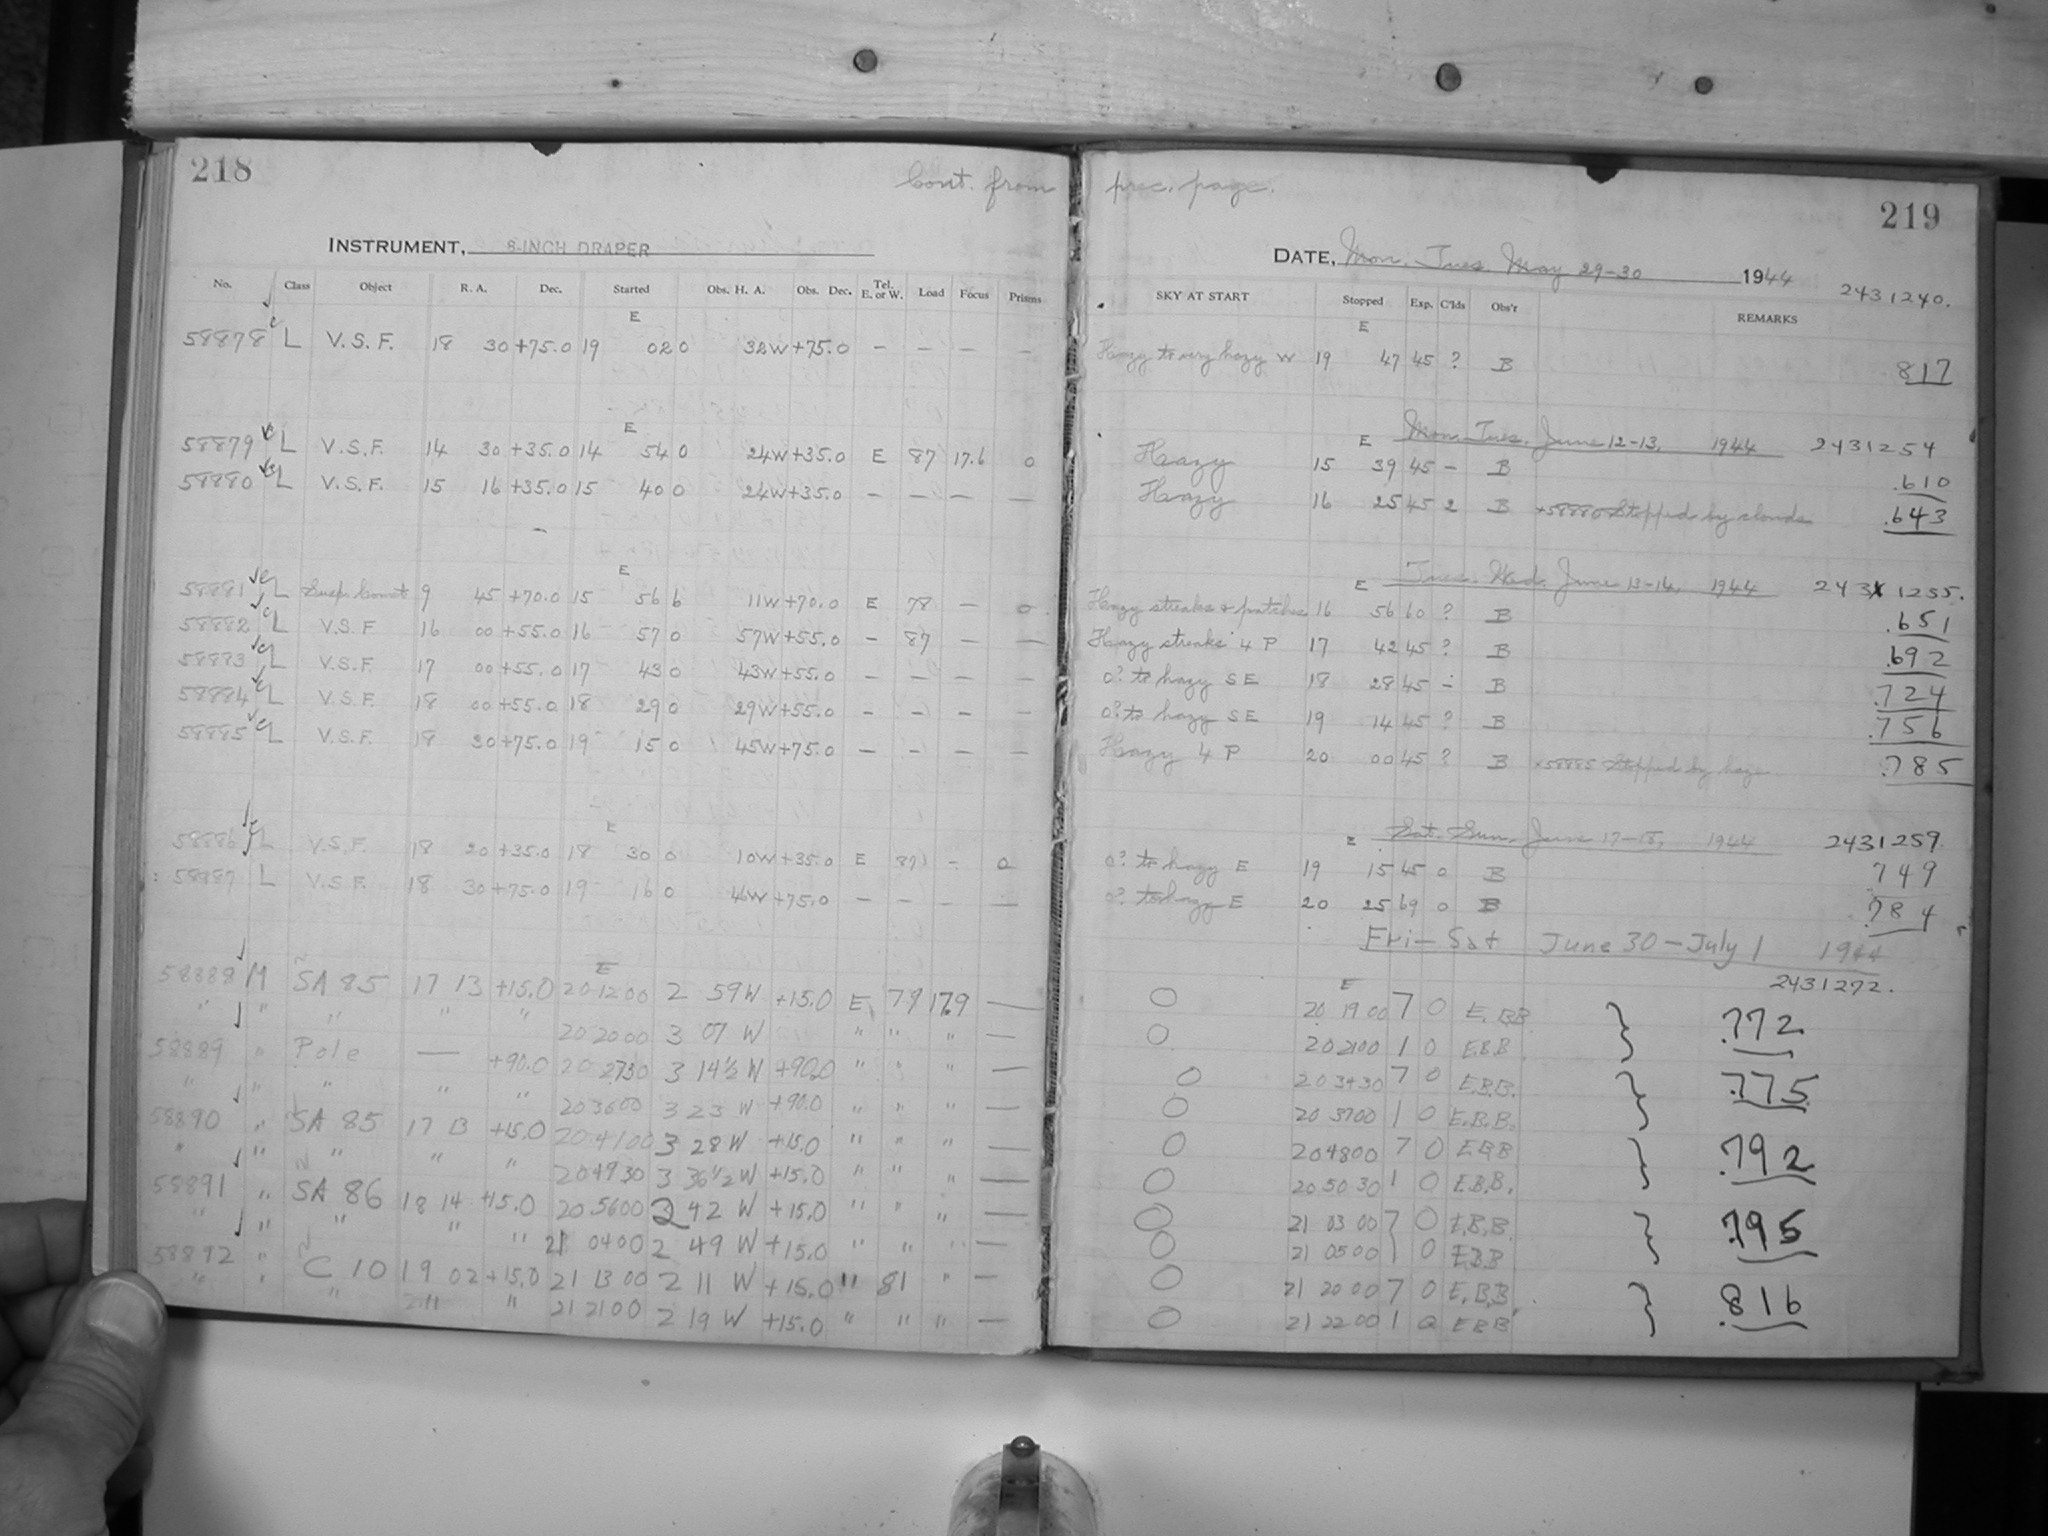 218
Cont. from prec. page.
219
INSTRUMENT, 8-INCH DRAPER
DATE, Mon. Tues. May 29-30 1944
2431240.
No. Class Object R. A. Dec. Started Obs. H. A. Obs. Dec. Tel. E. or W. Load Focus Prisms
SKY AT START Stopped Exp. C'lds Obs'r REMARKS
E E
58878 L V.S.F. 18 30 +75.0 19 02 0 32W +75.0 — — — — Hazy to very hazy W 19 47 45 ? B .817
E E Mon. Tues. June 12-13, 1944 2431254
58879 L V.S.F. 14 30 +35.0 14 54 0 24W +35.0 E 87 17.6 0 Hazy 15 39 45 — B .610
58880 L V.S.F. 15 16 +35.0 15 40 0 24W +35.0 — — — — Hazy 16 25 45 2 B +58880 Stopped by clouds .643
E E Tues. Wed. June 13-14, 1944 2431255.
58881 L Susp. Comet 9 45 +70.0 15 56 6 11W +70.0 E 78 — 0 Hazy streaks + patches 16 56 60 ? B .651
58882 L V.S.F 16 00 +55.0 16 57 0 57W +55.0 — 87 — — Hazy streaks 4 P 17 42 45 ? B .692
58883 L V.S.F. 17 00 +55.0 17 43 0 43W +55.0 — — — — 0? to hazy SE 18 28 45 — B .724
58884 L V.S.F. 18 00 +55.0 18 29 0 29W +55.0 — — — — 0? to hazy SE 19 14 45 ? B .756
58885 L V.S.F. 18 30 +75.0 19 15 0 45W +75.0 — — — — Hazy 4 P 20 00 45 ? B 58885 Stopped by haze .785
E E Sat. Sun. June 17-18, 1944 2431259.
58886 L V.S.F. 18 20 +35.0 18 30 0 10W +35.0 E 87 — 0 0? to hazy E 19 15 45 0 B .749
58887 L V.S.F. 18 30 +75.0 19 16 0 46W +75.0 — — — — 0? to hazy E 20 25 69 0 B .784
Fri-Sat June 30-July 1 1944
E E 2431272.
58888 M SA 85 17 13 +15.0 20 12 00 2 59W +15.0 E 79 17.9 — 0 20 19 00 7 0 E.BB } .772
" " " " " 20 20 00 3 07 W " " " — 0 20 21 00 1 0 E.B.B
58889 " Pole — +90.0 20 27 30 3 14½ W +90.0 " " " — 0 20 34 30 7 0 E.B.B. } .775
" " " " " 20 36 00 3 23 W +90.0 " " " — 0 20 37 00 1 0 E.B.B.
58890 " SA 85 17 13 +15.0 20 41 00 3 28 W +15.0 " " " — 0 20 48 00 7 0 EBB } .792
" " " " " 20 49 30 3 36½ W +15.0 " " " — 0 20 50 30 1 0 E.B.B.
58891 " SA 86 18 14 +15.0 20 56 00 2 42 W +15.0 " " " — 0 21 03 00 7 0 E.B.B. } .795
" " " " " 21 04 00 2 49 W +15.0 " " " — 0 21 05 00 1 0 EBB
58892 " C 10 19 02 +15.0 21 13 00 2 11 W +15.0 " 81 " — 0 21 20 00 7 0 E.B.B } .816
" " " " " 21 21 00 2 19 W +15.0 " " " — 0 21 22 00 1 0 EBB